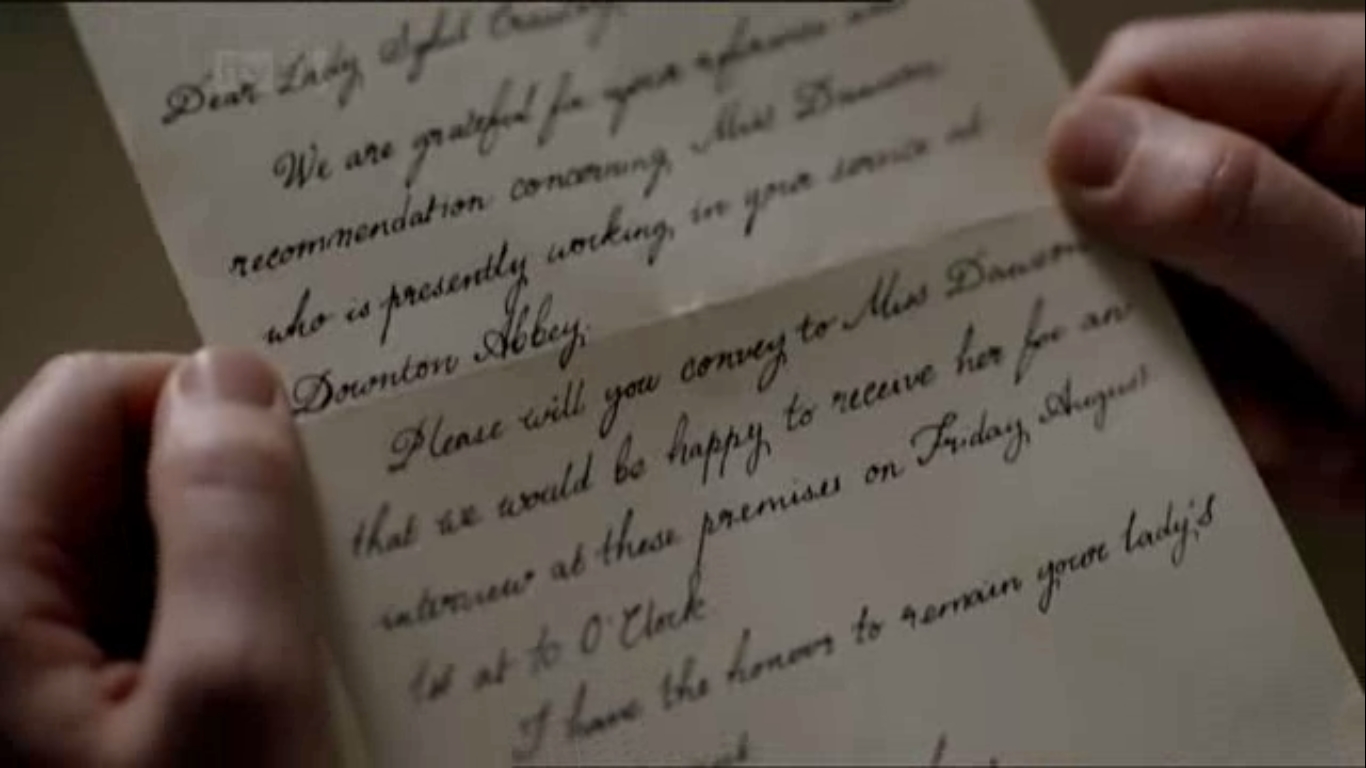 Dear Lady Sybil Crawley,
We are grateful for your reference and
recommendation concerning, Miss Dawson,
who is presently working, in your service at
Downton Abbey.
Please will you convey to Miss Dawson
that we would be happy to receive her for an
interview at these premises on Friday, August
1st at to O'Clock
I have the honour to remain your lady's